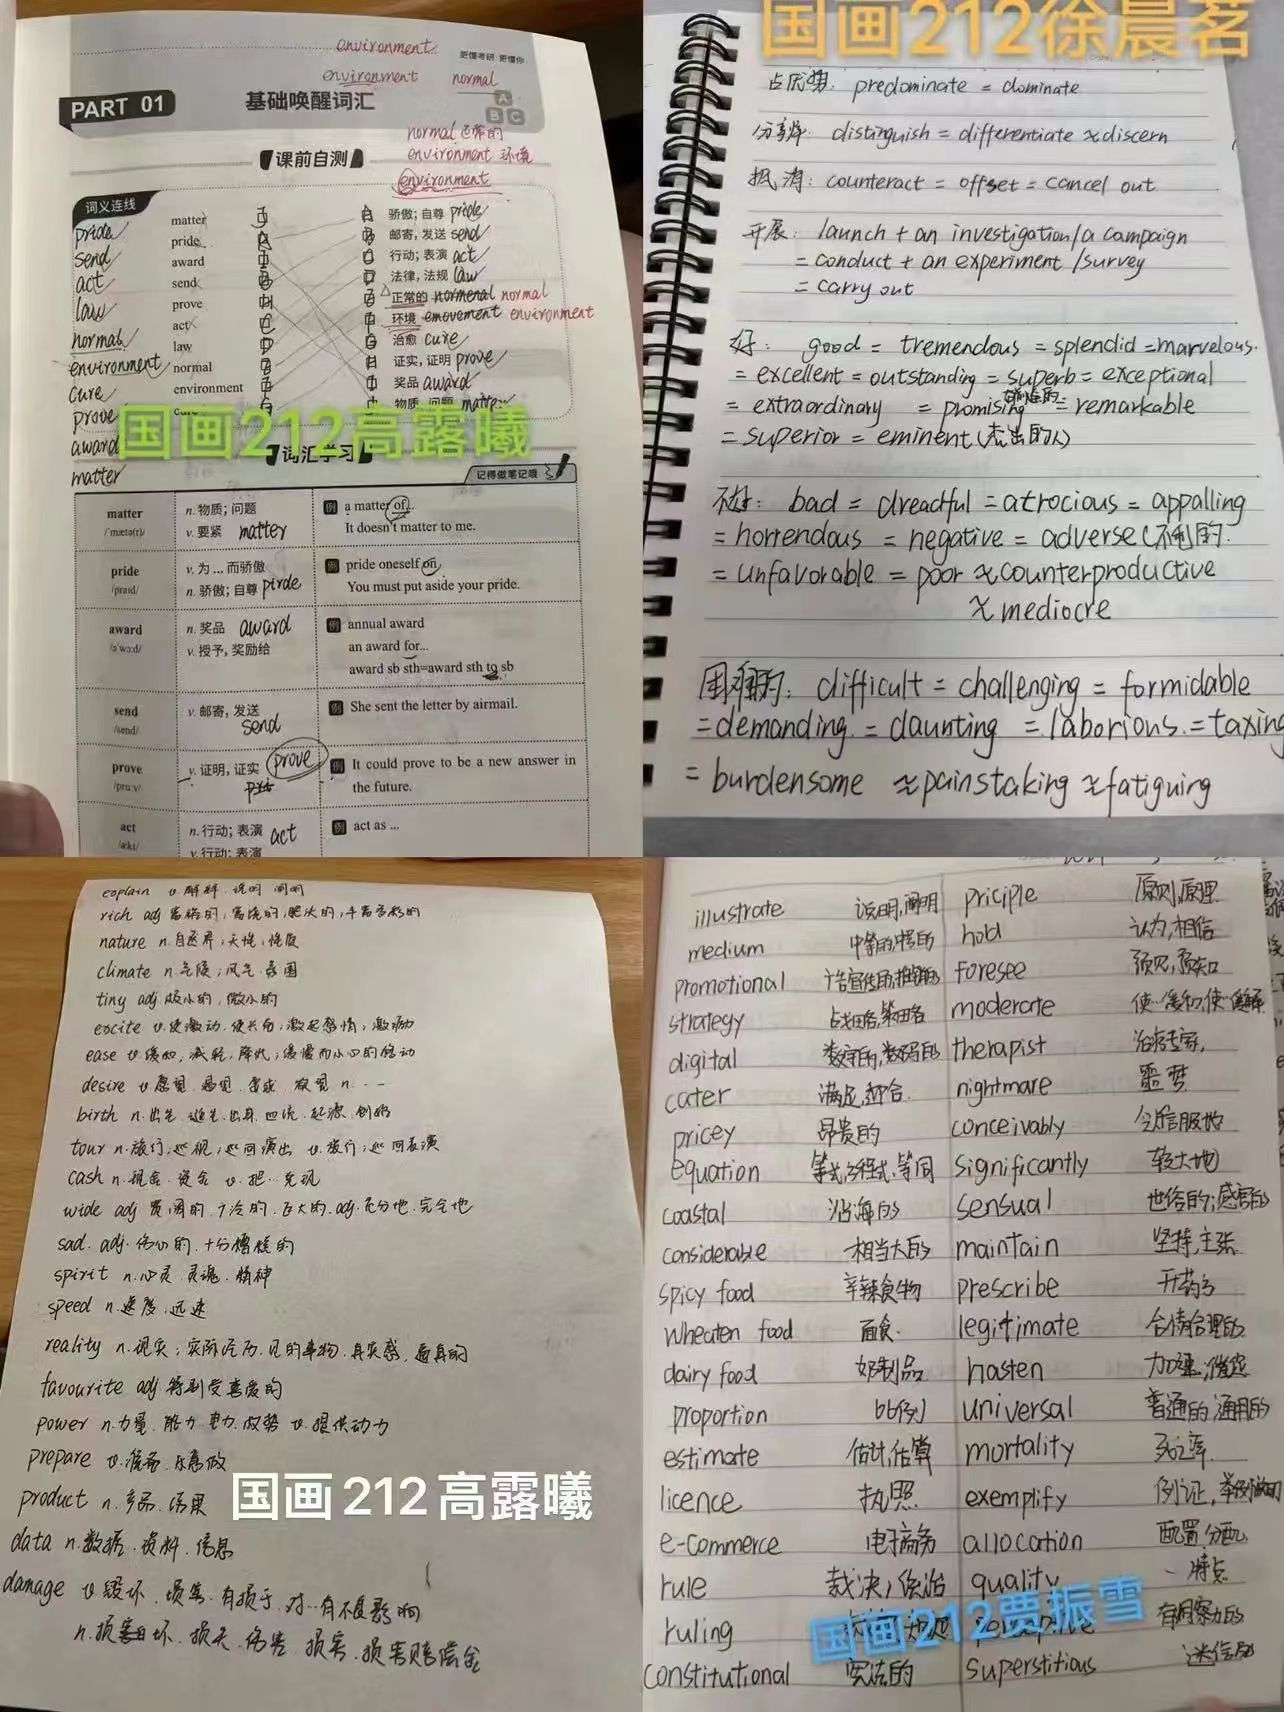 environment
更懂考研 更懂你
environment normal
PART 01
基础唤醒词汇
A
B C
normal 正常的
课前自测
environment 环境
environment
词义连线
matter 骄傲；自尊 pride
pride pride 邮寄，发送 send
send award 行动；表演 act
act send 法律，法规 law
law prove 正常的 normenal normal
act 环境 emovement environment
normal law 治愈 cure
environment normal 证实，证明 prove
cure environment 奖品 award
prove cure 物质，问题 matter
国画212高露曦
award
词汇学习
matter
记得做笔记哦
matter n. 物质；问题 例 a matter of...
/ˈmætə(r)/ v. 要紧 matter It doesn't matter to me.
pride v. 为...而骄傲 例 pride oneself on
/praɪd/ n. 骄傲；自尊 piride You must put aside your pride.
award n. 奖品 award 例 annual award
/əˈwɔːd/ v. 授予，奖励给 an award for...
award sb sth=award sth to sb
send v. 邮寄，发送 例 She sent the letter by airmail.
/send/ send
prove v. 证明，证实 prove 例 It could prove to be a new answer in
/pruːv/ the future.
act n. 行动；表演 act 例 act as ...
/ækt/ v. 行动；表演
国画212徐晨茗
占优势: predominate = dominate
分辨: distinguish = differentiate ≈ discern
抵消: counteract = offset = cancel out
开展: launch + an investigation/a campaign
= conduct + an experiment /survey
= carry out
好: good = tremendous = splendid = marvelous
= excellent = outstanding = superb = exceptional
= extraordinary = promising = remarkable
= superior = eminent (杰出的人)
不好: bad = dreadful = atrocious = appalling
= horrendous = negative = adverse (不利的
= unfavorable = poor ≈ counterproductive
≈ mediocre
困难的: difficult = challenging = formidable
= demanding = daunting = laborious = taxing
= burdensome ≈ painstaking ≈ fatiguing
explain v. 解释．说明 阐明
rich adj 富裕的，富饶的，肥沃的，丰富多彩的
nature n. 自然界；天性；性质
climate n. 气候；风气．氛围
tiny adj. 极小的，微小的
excite v. 使激动．使兴奋；激起感情；激励
ease v 缓和，减轻，降低；缓慢而小心的移动
desire v. 愿望 渴望 要求 欲望 n. ...
birth n. 出生．诞生．出身．血统．起源．创始
tour n. 旅行，巡视；巡回演出 v. 旅行；巡回表演
cash n. 现金．资金 v. 把…兑现
wide adj 宽阔的．广泛的．巨大的．adj. 充分地．完全地
sad. adj. 伤心的．十分糟糕的
spirit n. 心灵．灵魂．精神
speed n. 速度．迅速
reality n. 现实；实际经历．见的事物．真实感．逼真的
favourite adj 特别受喜爱的
power n. 力量．能力．电力．政势 v. 提供动力
prepare v. 准备．乐意做
product n. 产品．结果
国画212高露曦
data n. 数据．资料．信息
damage v 毁坏．损害．有损于．对…有不良影响
n. 损害．损失．伤害．损害．损害赔偿金
illustrate 说明，阐明 priciple 原则，原理
medium 中等的，中号的 hold 认为，相信
promotional 广告宣传的，推销的 foresee 预见，预知
strategy 战略，策略 moderate 使…缓和，使…缓解
digital 数字的，数码的 therapist 治疗专家，
cater 满足，迎合． nightmare 噩梦
pricey 昂贵的 conceivably 令人信服地
equation 等式，方程式，等同 significantly 较大地
coastal 沿海的 sensual 世俗的；感官的
considerable 相当大的 maintain 坚持，主张
spicy food 辛辣食物 prescribe 开药方
Wheaten food 面食． legitimate 合情合理的
dairy food 奶制品 hasten 加速，催促
proportion 比例 universal 普遍的，通用的
estimate 估计，估算 mortality 死亡率
licence 执照 exemplify 例证，举例说明
e-commerce 电子商务 allocation 配置，分配
rule 裁决，统治 quality 特点
ruling 有洞察力的
国画212贾振雪
constitutional 宪法的 superstitious 迷信的